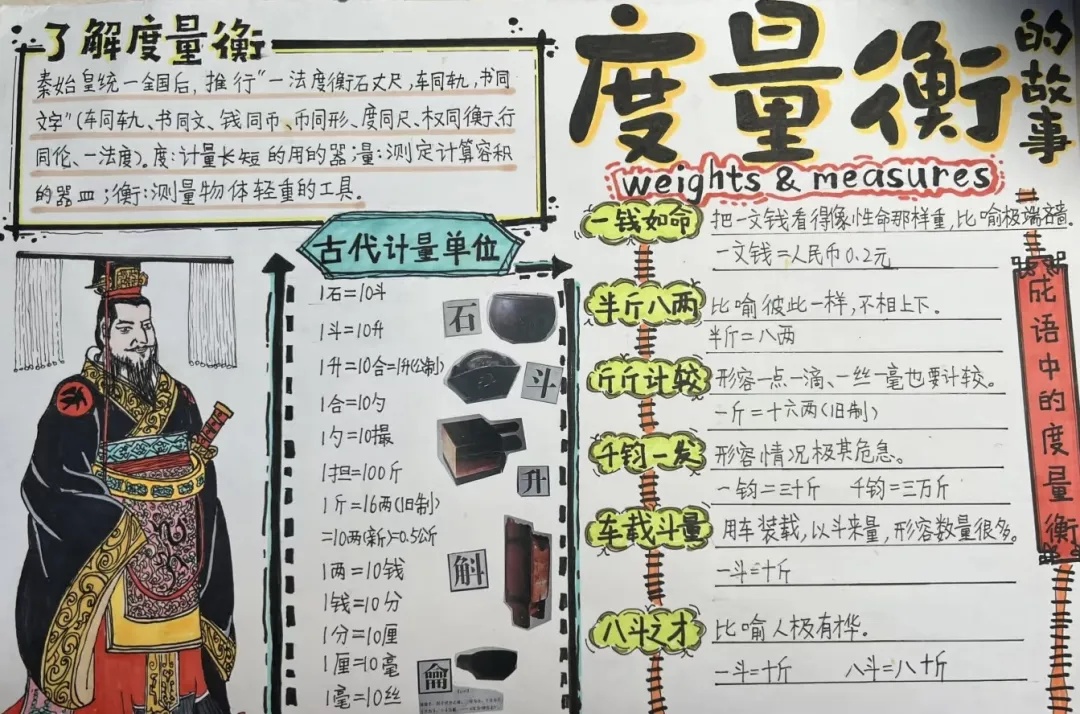 了解度量衡
秦始皇统一全国后，推行“一法度衡石丈尺，车同轨，书同
文字”（车同轨、书同文、钱同币、币同形、度同尺、权同衡、行
同伦、一法度）。度：计量长短的用的器；量：测定计算容积
的器皿；衡：测量物体轻重的工具。
古代计量单位
1石=10斗
1斗=10升
1升=10合=1升(公制)
1合=10勺
1勺=10撮
1担=100斤
1斤=16两(旧制)
=10两(新)=0.5公斤
1两=10钱
1钱=10分
1分=10厘
1厘=10毫
1毫=10丝
石
斗
升
斛
龠
度量衡
的故事
weights & measures
一钱如命
把一文钱看得像性命那样重，比喻极端吝啬。
一文钱=人民币0.2元
半斤八两
比喻彼此一样，不相上下。
半斤=八两
斤斤计较
形容一点一滴、一丝一毫也要计较。
一斤=十六两(旧制)
千钧一发
形容情况极其危急。
一钧=三十斤 千钧=三万斤
车载斗量
用车装载，以斗来量，形容数量很多。
一斗=十斤
八斗之才
比喻人极有桦。
一斗=十斤 八斗=八十斤
成语中的度量衡